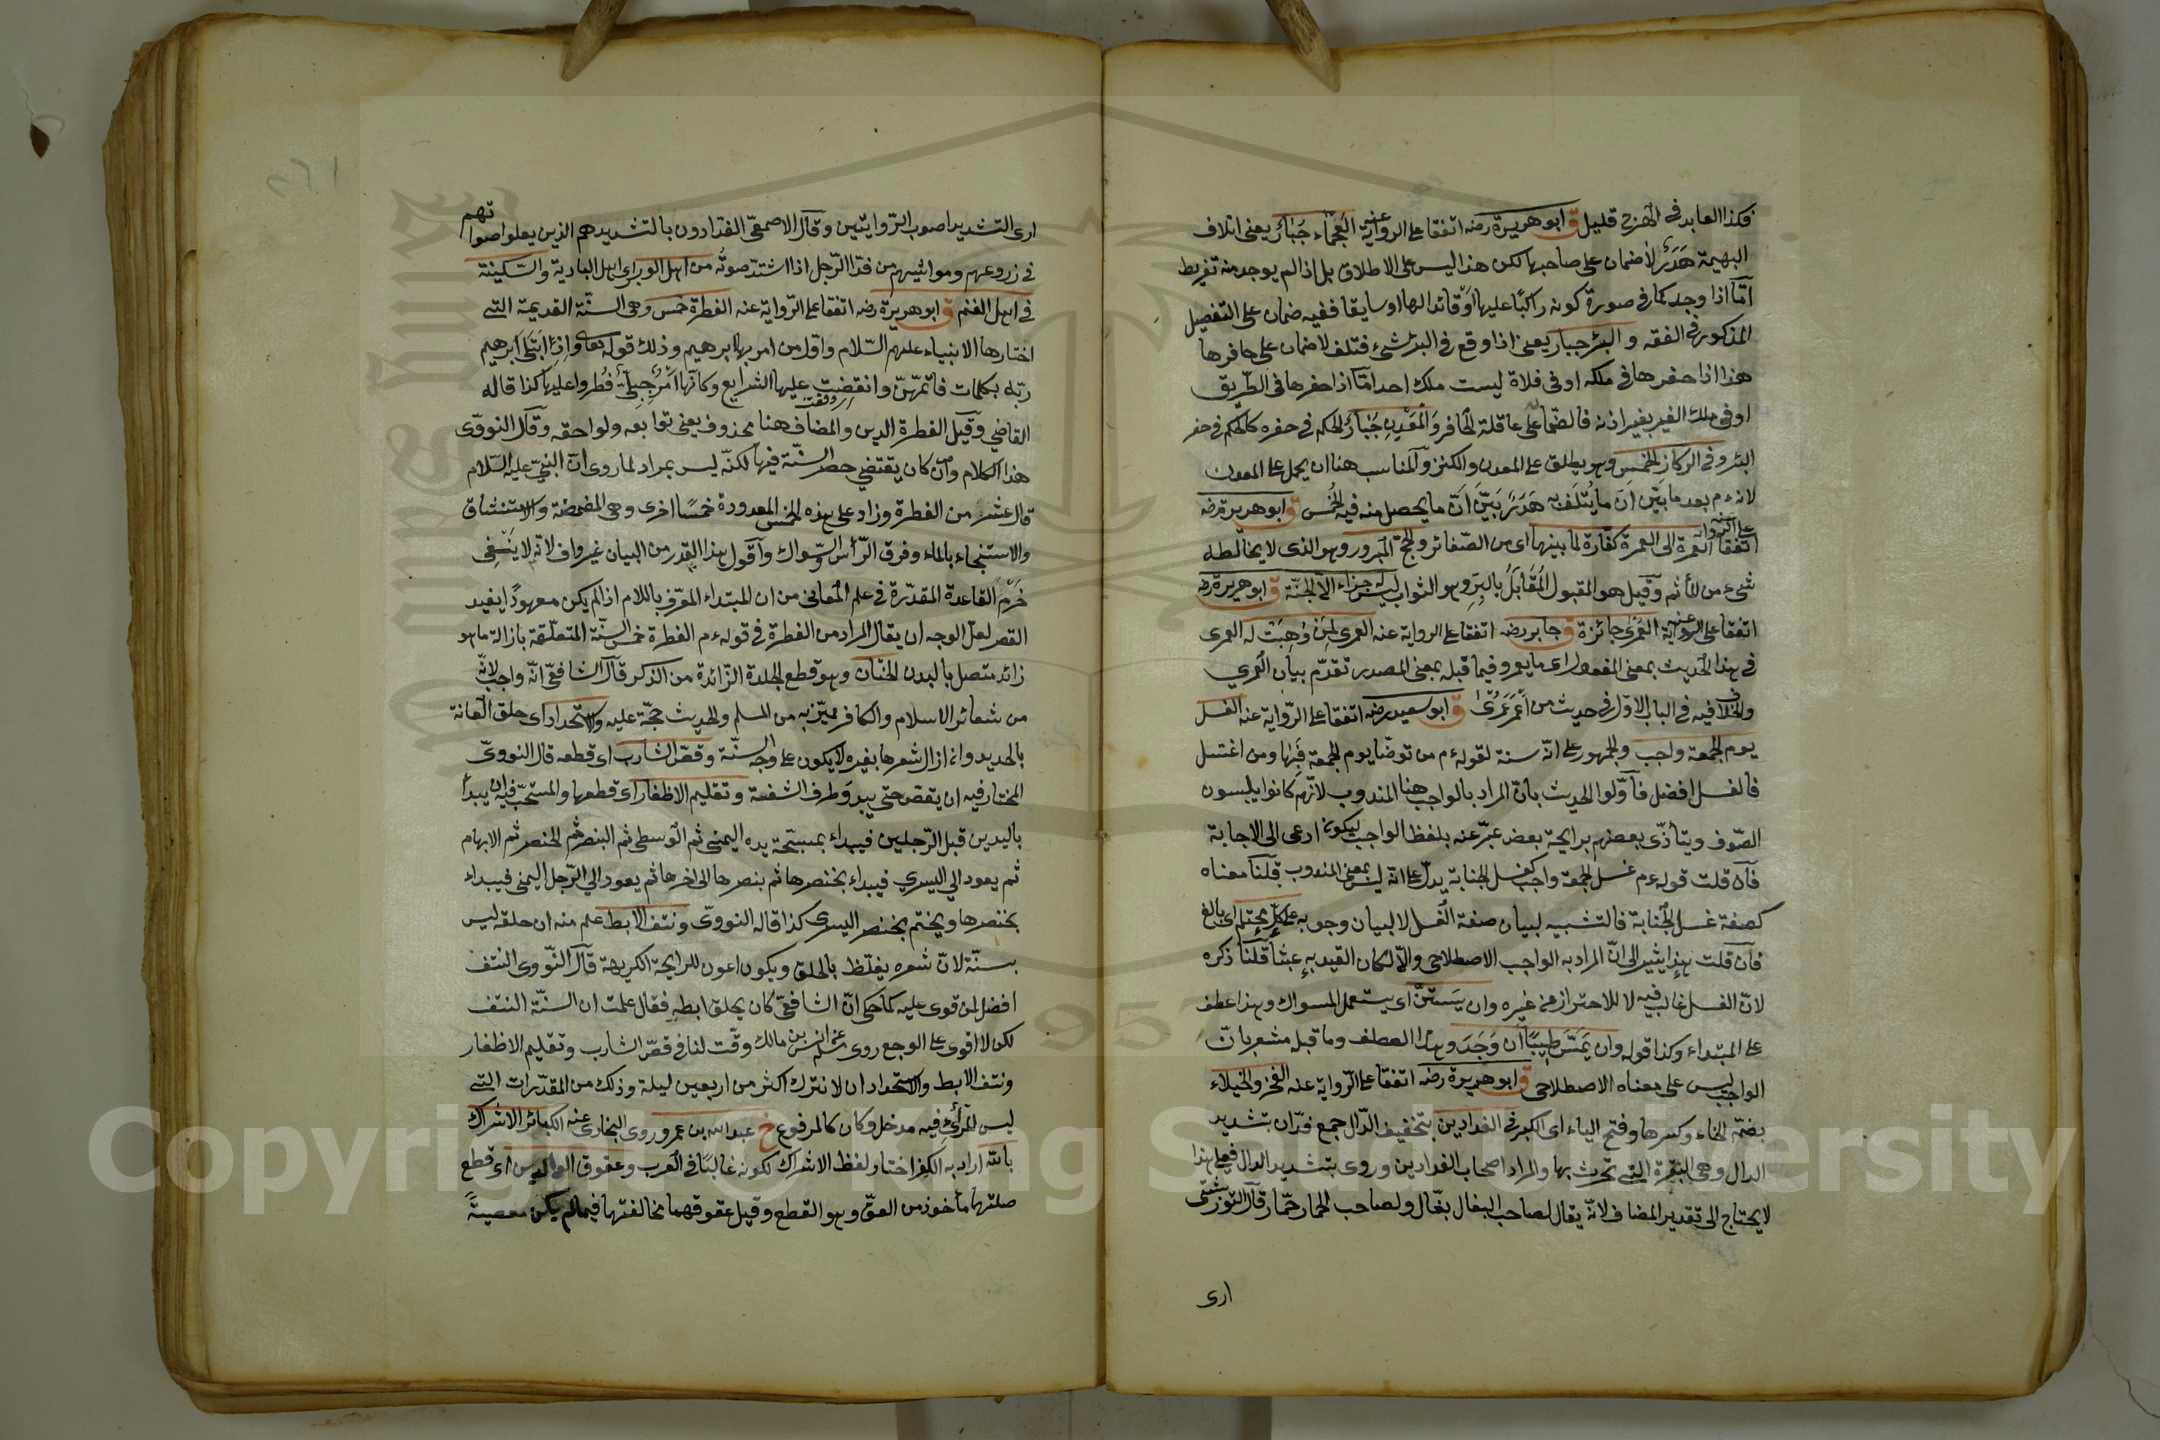 فكذا العابد في الهرج قليل ق ابو هريرة رضه اتفقا على الرواية عنه العجماء جبار يعنى اتلاف
البهيمة هدر لا ضمان على صاحبها لكن هذا ليس على الاطلاق بل اذا لم يوجد منه تفريط
امّا اذا وجد كما في صورة كونه راكبًا عليها او قائدا لها او سايقا ففيه ضمان على التفصيل
المذكور في الفقه والبئر جبار يعنى اذا وقع في البئر شئ فتلف لا ضمان على حافرها
هذا اذا حفرها في ملكه او في فلاة ليست ملك احد امّا اذا حفرها في الطّريق
او في ملك الغير بغير اذنه فالضمان على عاقلة الحافر والمعدن جبار الحكم في حفره كالحكم في حفر
البئر وفي الركاز الخمس وهو يطلق على المعدن والكنز والمناسب هنا ان يحمل على المعدن
لانه ءم بعد ما بيّن ان ما يتلف به هدر بيّن انّ ما يحصل منه فيه الخمس ق ابو هريرة رضه
اتفقا على الرواية عنه العمرة الى العمرة كفّارة لما بينهما اى من الصّغائر والحجّ المبرور وهو الذى لا يخالطه
شىء من المأثم وقيل هو المقبول المقابل بالبرّ وهو الثواب ليس له جزاء الّا الجنّة ق ابو هريرة رضه
اتفقا على الرواية عنه العمرى جائزة ق جابر رضه اتفقا على الرواية عنه العمرى لمن وهبت له العمرى
في هذا الحديث بمعنى المفعول اى ما يعمر وفيما قبله بمعنى المصدر تقدّم بيان العمري
والخلاف فيه في الباب الاوّل في حديث من اعمر عمرى ق ابو سعيد رضه اتفقا على الرّواية عنه الغسل
يوم الجمعة واجب والجمهور على انّه سنة لقوله ءم من توضّا يوم الجمعة فبها ومن اغتسل
فالغسل افضل فاوّلوا الحديث بانّ المراد بالواجب هنا المندوب لانّهم كانوا يلبسون
الصّوف ويتأذّى بعضهم برايحة بعض عبّر عنه بلفظ الواجب ليكون ادعى الى الاجابة
فان قلت قوله ءم غسل الجمعة واجب كغسل الجنابة يدلّ على انه ليس بمعنى المندوب قلنا معناه
كصفة غسل الجنابة فالتشبيه لبيان صفة الغسل لا لبيان وجوبه على كلّ محتلم اى بالغ
فان قلت هذا يشير الى انّ المراد به الواجب الاصطلاحى والّا لكان القيد به عبثا قلنا ذكره
لانّ الغسل غالب فيه لا للاحتراز عن غيره وان يستنّ اى يستعمل المسواك وهذا عطف
على المبتداء وكذا قوله وان يمسّ طيبًا ان وجد وهذا العطف وما قبله مشعر بان
الواجب ليس على معناه الاصطلاحى ق ابو هريرة رضه اتفقا على الرّواية عنه الفخر والخيلاء
بضمّ الخاء وكسرها وفتح الياء اى الكبر في الفدادين بتخفيف الدّال جمع فدّان بتشديد
الدال وهى البقرة التى تحرث بها والمراد اصحاب الفدادين وروى بتشديد الدال فعلى هذا
لا يحتاج الى تقدير المضاف لانّه يقال لصاحب البغال بغّال ولصاحب الحمار حمّار قال التوربشتى
ارى
ارى التشديد اصوب الرّوايتين وقال الاصمعّى الفدادون بالتشديد هم الذين يعلوا صواتهم
في زروعهم ومواشيهم من فدّ الرّجل اذا اشتدّ صوته من اهل الوبر اى اهل البادية والسّكينة
في اهل الغنم ق ابو هريرة رضه اتفقا على الرّواية عنه الفطرة خمس وهى السنّة القديمة التى
اختارها الانبياء عليهم السّلام واوّل من امر بها ابرهيم وذلك قوله تعالى واذ ابتلى ابرهيم
ربّه بكلمات فاتمهنّ وانفقت عليها الشرايع وكانّها امر جبلّى فطروا عليها كذا قاله
القاضي وقيل الفطرة الدين والمضاف هنا محذوف يعنى توابعه ولواحقه وقال النووّى
هذا الكلام وان كان يقتضي حصر السنّة فيها لكنّه ليس بمراد لما روى انّ النبىّ عليه السّلام
قال عشر من الفطرة وزاد على هذه الخمس المعدودة خمسًا اخرى وهى المضمضة والاستنشاق
والاستنجاء بالماء وفرق الرّأس والسّواك واقول هذا القدر من البيان غير واف لانّه لا ينفى
خرم القاعدة المقدّرة في علم المعانى من ان المبتداء المعرّف باللام اذا لم يكن معهودًا يفيد
القصر لعلّ الوجه ان يقال المراد من الفطرة في قوله ءم الفطرة خمس السنّة المتعلّقة بازالة ما هو
زائد متصل بالبدن الختان وهو قطع الجلدة الزّائدة من الذكر قال الشافعىّ انّه واجب لانّه
من شعائر الاسلام والكافر يميّز به من المسلم والحديث حجّة عليه والاستحداد اى حلق العانة
بالحديد وان ازال شعرها بغيره لا يكون على وجه السنّة وقصّ الشارب اى قطعه قال النووىّ
المختار فيه ان يقص حتى يبدو طرف الشفة وتقليم الاظفار اى قطعها والمستحبّ فيه ان يبدأ
باليدين قبل الرّجلين فيبداء بمسبّحة يده اليمنى ثم الوسطى ثم البنصر ثم الخنصر ثم الابهام
ثم يعود الي اليسري فيبداء بخنصرها ثم بنصرها الى اخرها ثم يعود الي الرّجل اليمنى فيبداء
بخنصرها ويختم بخنصر اليسرى كذا قاله النووىّ ونتف الابط علم منه ان حلقه ليس
بسنّة لانّ شعره يغلظ بالحلق ويكون اعون للرايحة الكريهة قال النّووى النتف
افضل لمن قوى عليه كما حكى انّ الشافعّى كان يحلق ابطه فقال علمت ان السنّة النتف
لكن لا اقوى على الوجع روى مسلم عن انس بن مالك وقّت لنا في قصّ الشارب وتقليم الاظفار
ونتف الابط والاستحداد ان لا نترك اكثر من اربعين ليلة وذلك من المقدّرات التى
ليس للرّأى فيه مدخل وكان كالمرفوع خ عبد الله بن عمرو روى البخارى عنه الكبائر الاشراك
بالله اراد به الكفر اختار لفظ الاشراك لكونه غالبًا في العرب وعقوق الوالدين اى قطع
صلتهما مأخوذ من العقّ وهو القطع وقيل عقوقهما مخالفتهما فيما لم يكن معصيةً
Copyright © King Saud University